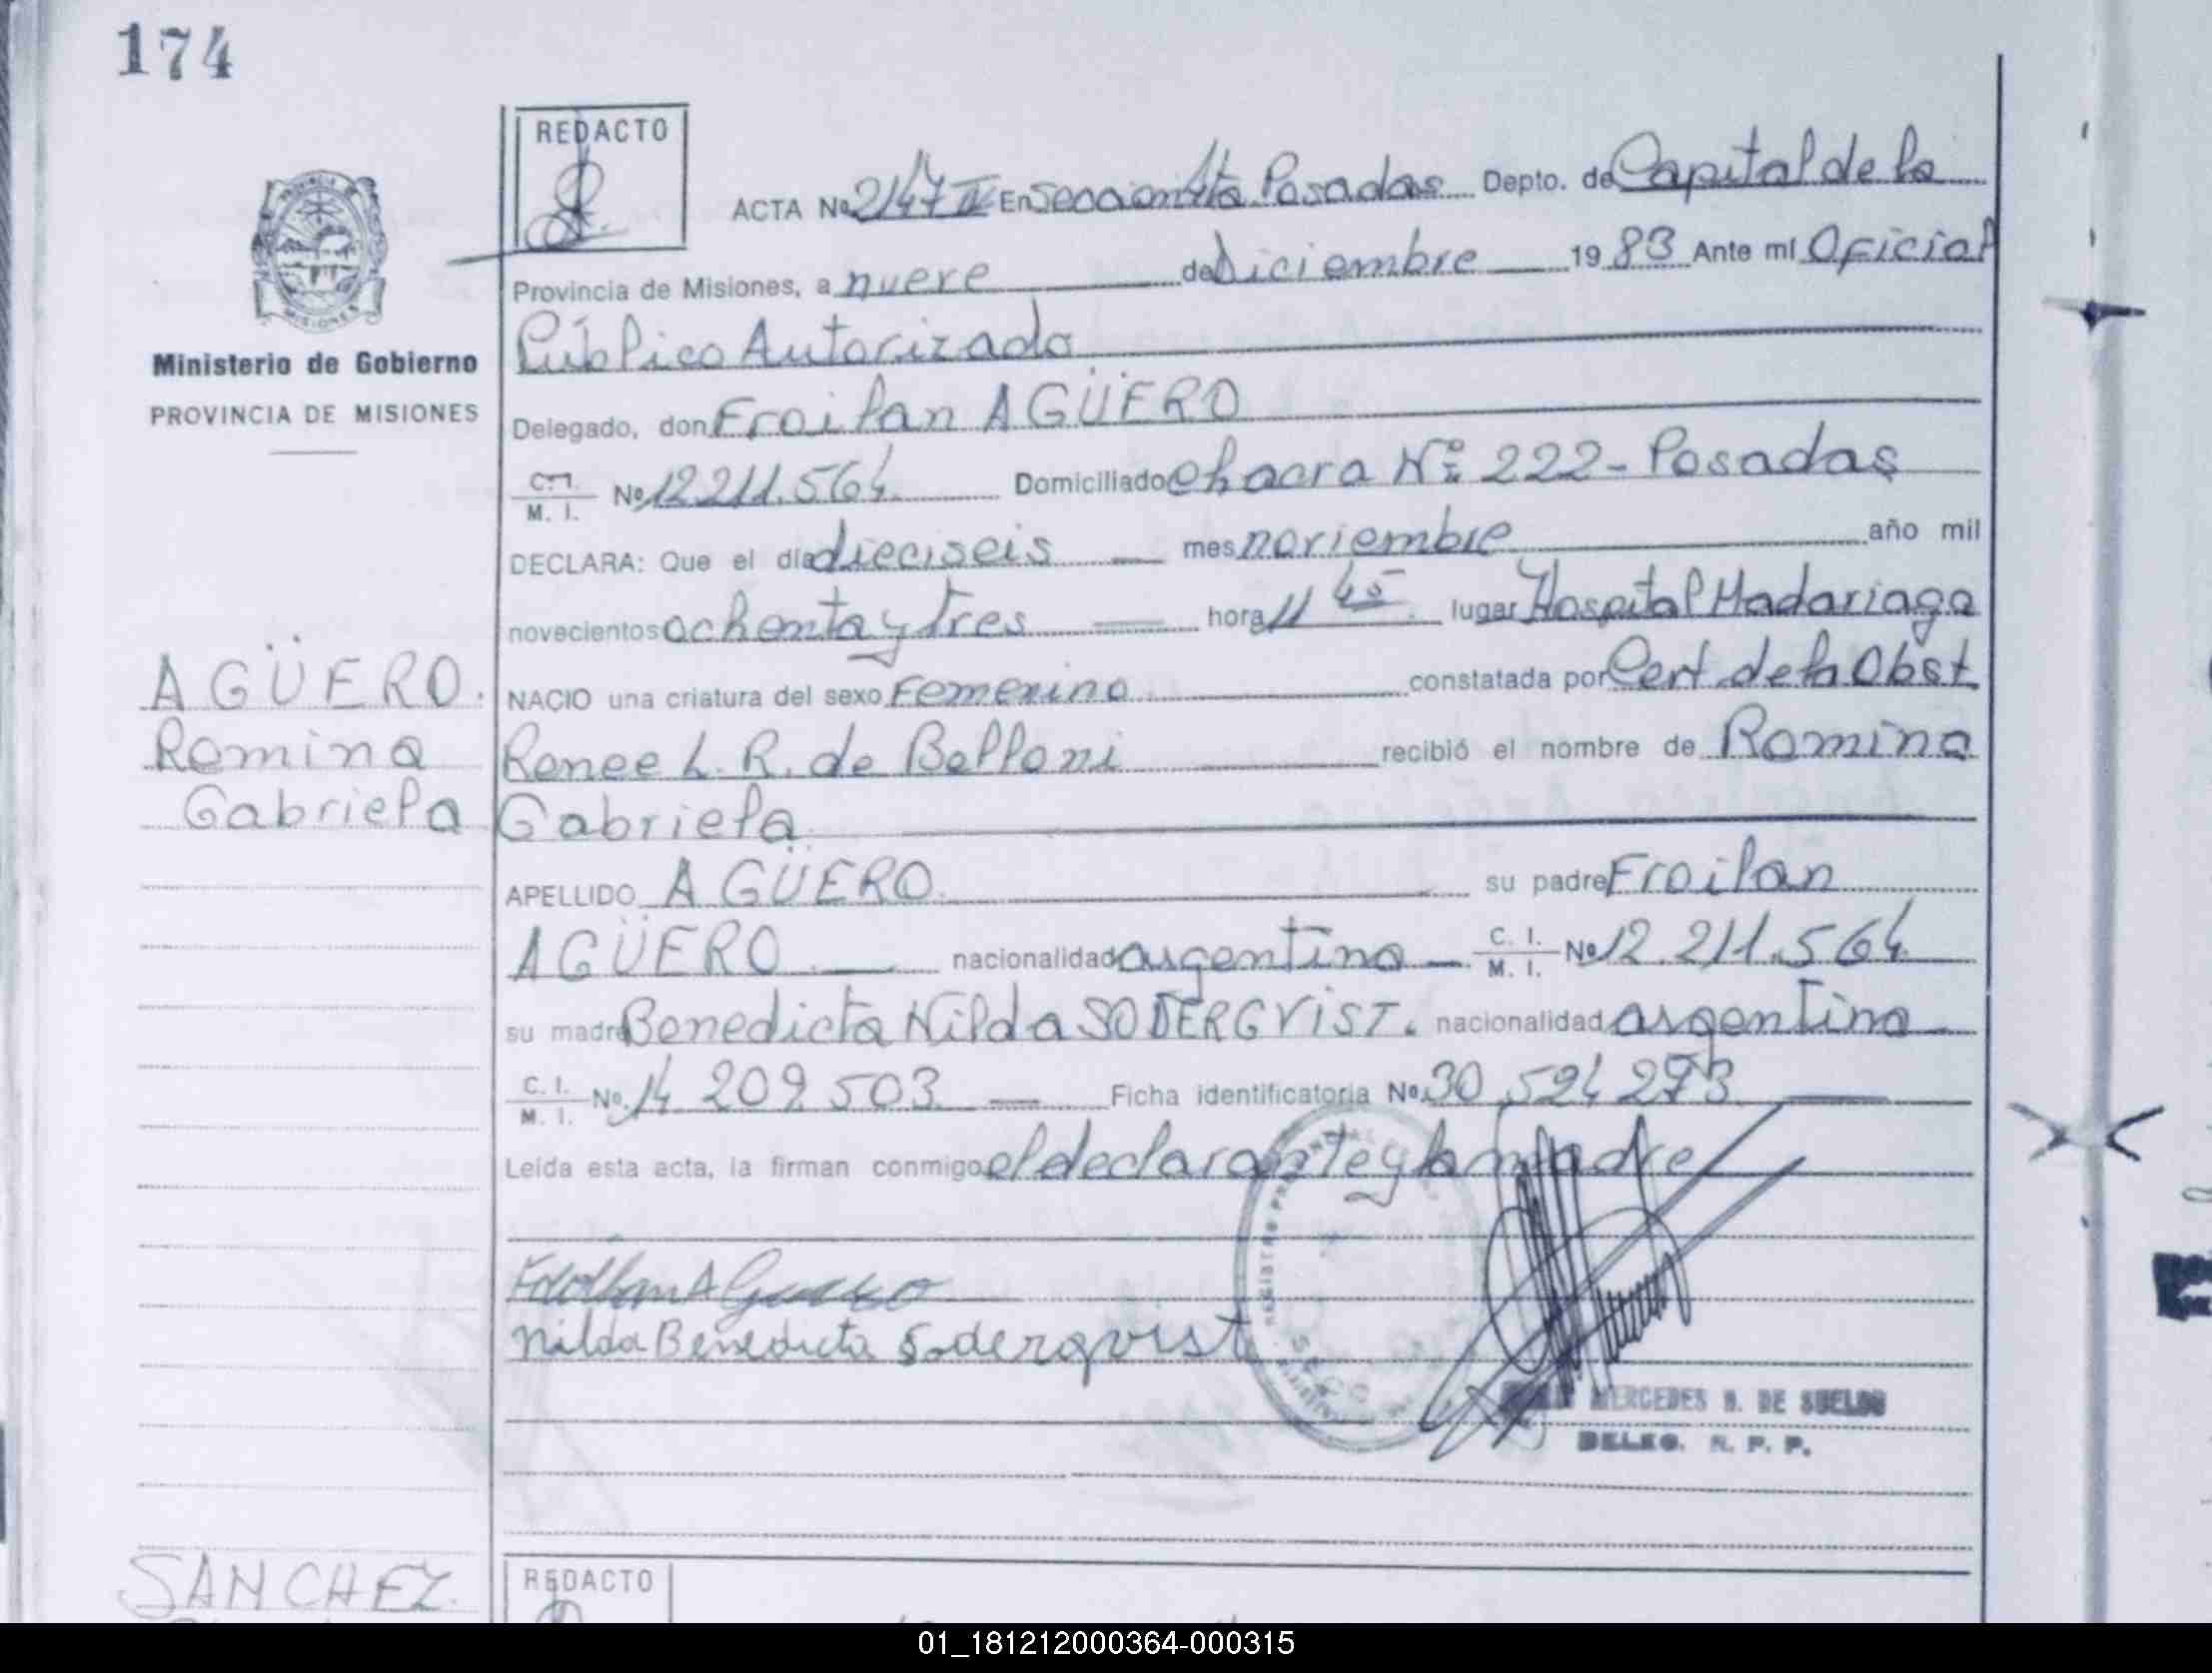 174
REDACTO
ACTA Nº 2147 IV En Sección 4ta Posadas Depto. de Capital de la
Provincia de Misiones, a nueve de Diciembre 1983 Ante mí Oficial
Público Autorizado
Ministerio de Gobierno
PROVINCIA DE MISIONES
Delegado, don Froilan AGÜERO
C. I. M. I. Nº 12.211.564. Domiciliado chacra Nº 222 - Posadas
DECLARA: Que el día dieciseis mes noviembre año mil
novecientos ochenta y tres hora 11 45 lugar Hospital Madariaga
AGÜERO.
Romina
Gabriela
NACIO una criatura del sexo Femenino constatada por Cert. de la Obst
Renee L. R. de Belloni recibió el nombre de Romina
Gabriela
APELLIDO AGÜERO su padre Froilan
AGÜERO nacionalidad argentino C. I. M. I. Nº 12.211.564
su madre Benedicta Nilda SODERGVIST. nacionalidad argentina
C. I. M. I. Nº 14.209.503 Ficha identificatoria Nº 30.524.273
Leída esta acta, la firman conmigo el declarante y la madre
Nilda Benedicta Soderqvist
MERCEDES S. DE SUELDO
DELEG. R. P. P.
SANCHEZ.
REDACTO
01_181212000364-000315